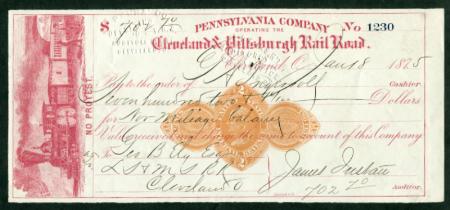 PENNSYLVANIA COMPANY No 1230
OPERATING THE
$ 702 70
Cleveland & Pittsburgh Rail Road.
Cleveland, O. Jan 18 1875
Pay to the order of Cashier
Seven hundred two & 70/100 Dollars
for Nov Mileage balance
Value received and charge the same to account of this Company
NO PROTEST.
To Geo B Ely Esq
L S & M S R R
Cleveland O
James
702 70
Auditor.